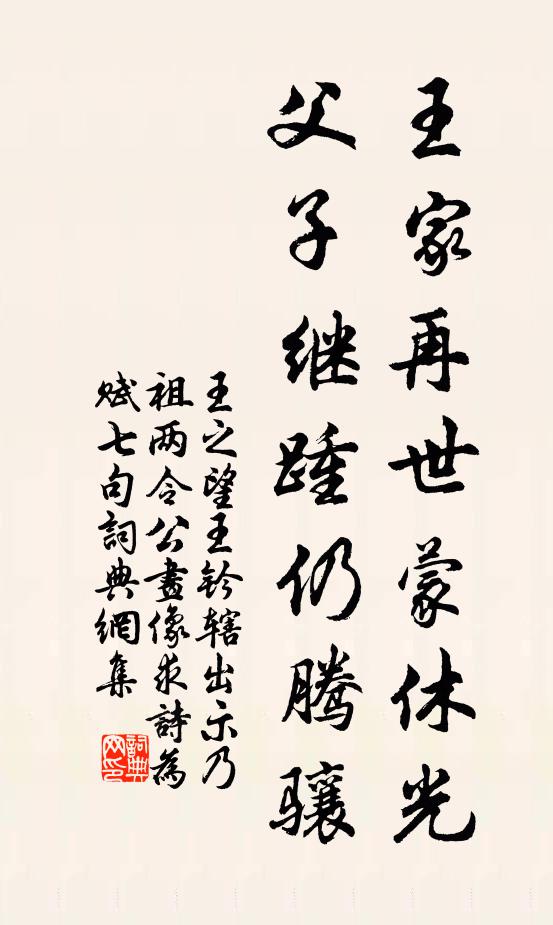 王家再世蒙休光
父子继踵仍腾骧
王之望王钤辖出示乃
祖两令公畫像求詩為
赋七句詞典網集
詞典
网印